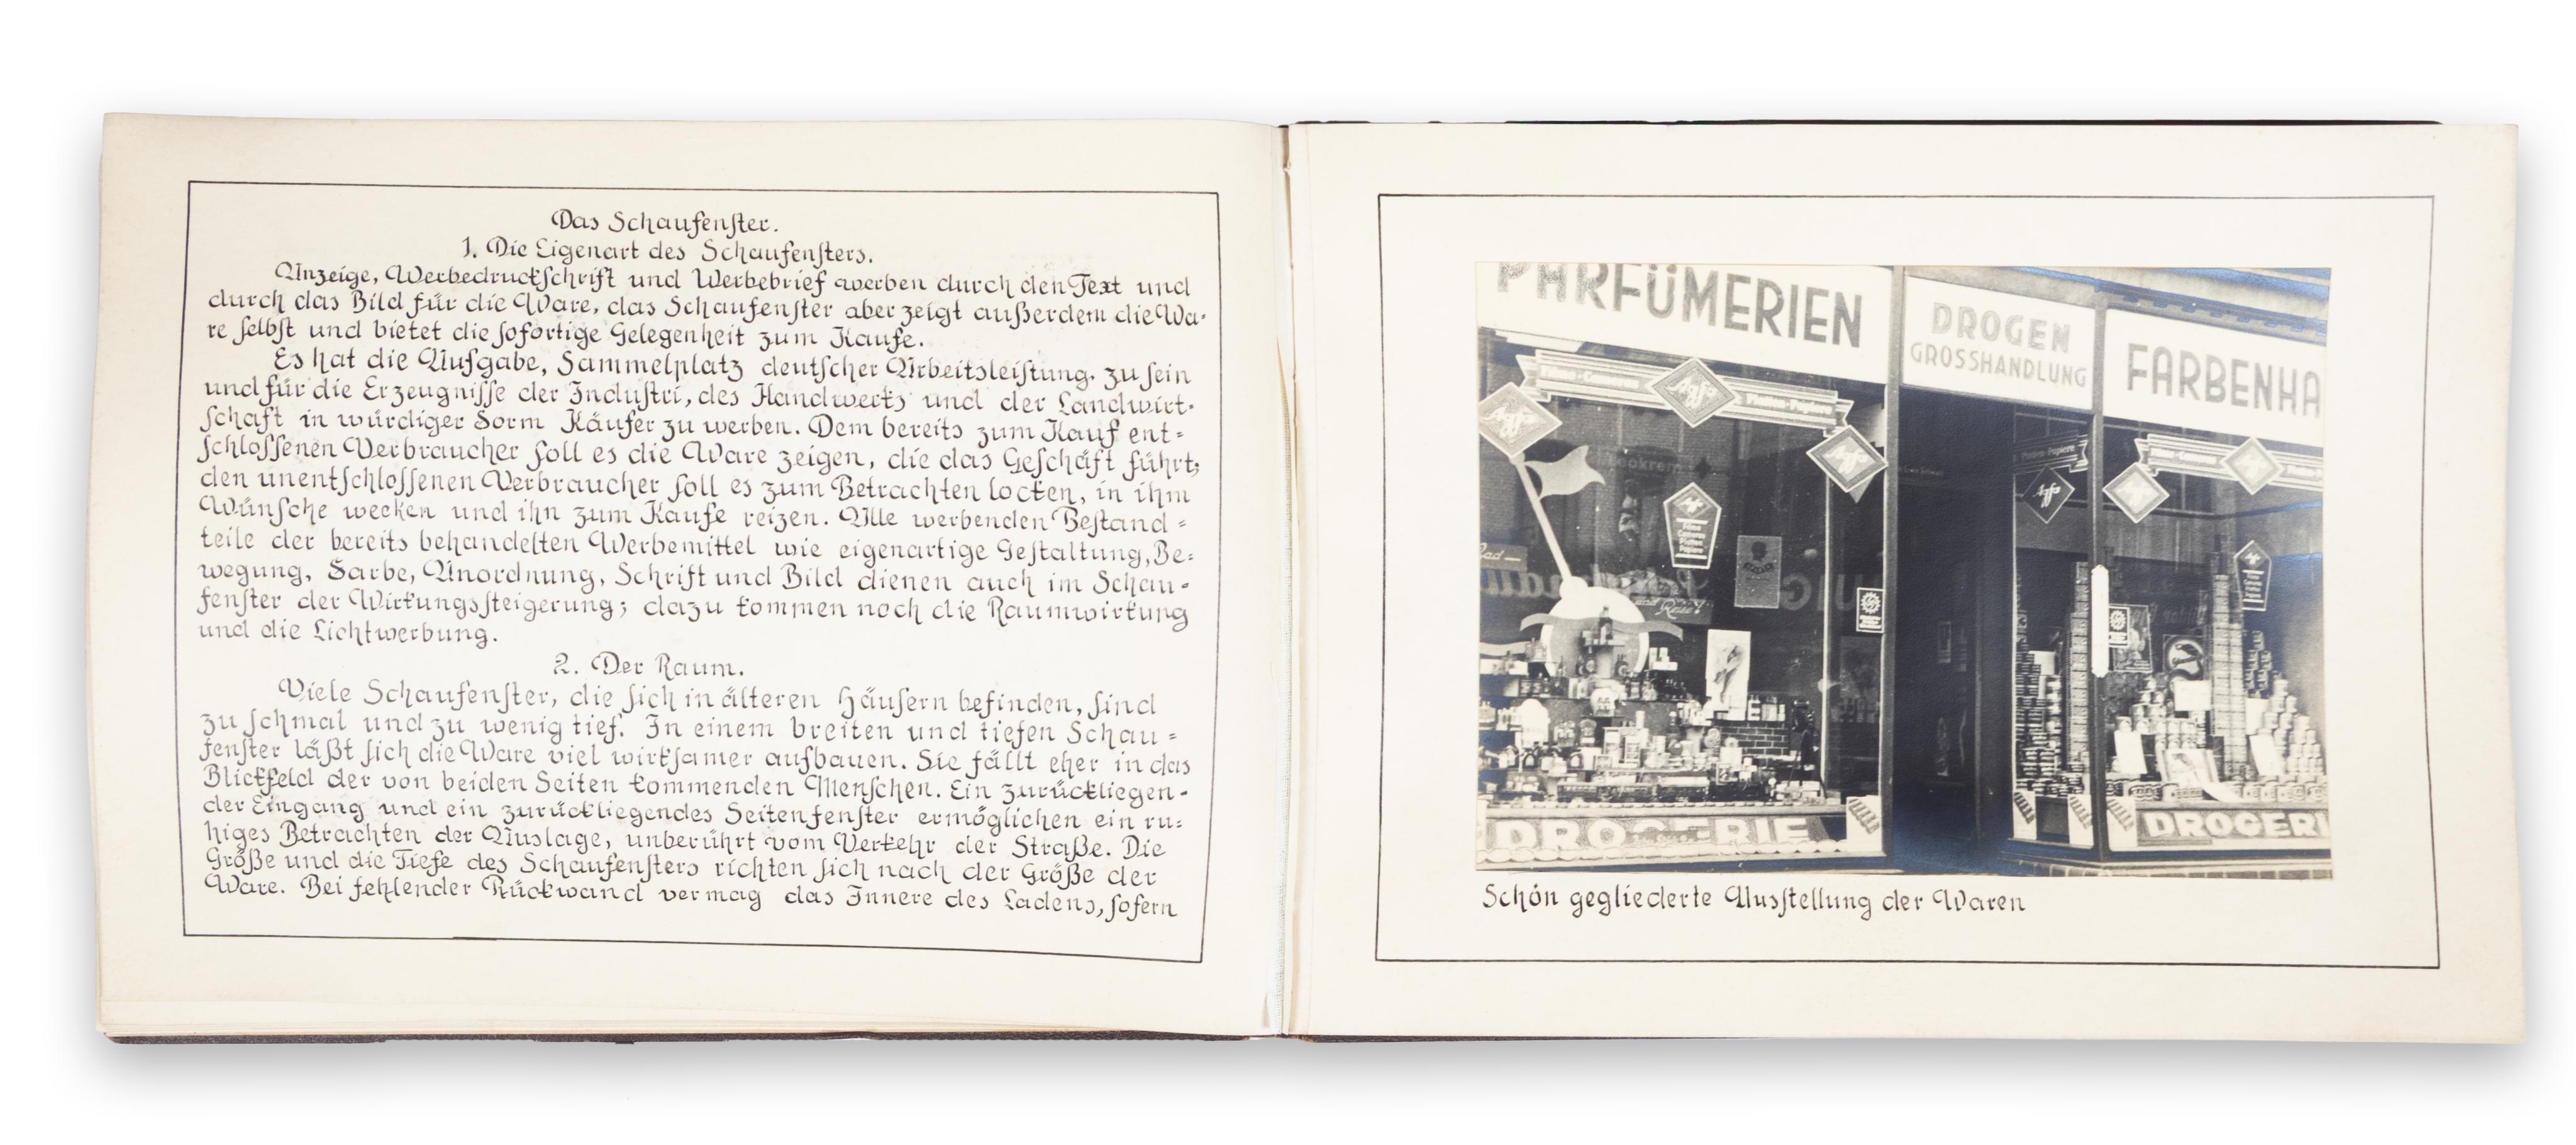 Das Schaufenſter.
1. Die Eigenart des Schaufenſters.
Anzeige, Werbedruckſchrift und Werbebrief werben durch den Text und
durch das Bild für die Ware, das Schaufenſter aber zeigt außerdem die Wa-
re ſelbſt und bietet die ſofortige Gelegenheit zum Kaufe.
Es hat die Aufgabe, Sammelplatz deutſcher Arbeitsleiſtung. zu ſein
und für die Erzeugniſſe der Induſtri, des Handwerks und der Landwirt-
ſchaft in würdiger Form Käufer zu werben. Dem bereits zum Kauf ent=
ſchloſſenen Verbraucher ſoll es die Ware zeigen, die das Geſchäft führt;
den unentſchloſſenen Verbraucher ſoll es zum Betrachten locken, in ihm
Wünſche wecken und ihn zum Kaufe reizen. Alle werbenden Beſtand=
teile der bereits behandelten Werbemittel wie eigenartige Geſtaltung, Be=
wegung, Farbe, Anordnung, Schrift und Bild dienen auch im Schau-
fenſter der Wirkungsſteigerung; dazu kommen noch die Raumwirkung
und die Lichtwerbung.
2. Der Raum.
Viele Schaufenſter, die ſich in älteren Häuſern befinden, ſind
zu ſchmal und zu wenig tief. In einem breiten und tiefen Schau=
fenſter läßt ſich die Ware viel wirkſamer aufbauen. Sie fällt eher in das
Blickfeld der von beiden Seiten kommenden Menſchen. Ein zurückliegen-
der Eingang und ein zurückliegendes Seitenfenſter ermöglichen ein ru=
higes Betrachten der Auslage, unberührt vom Verkehr der Straße. Die
Größe und die Tiefe des Schaufenſters richten ſich nach der Größe der
Ware. Bei fehlender Rückwand vermag das Innere des Ladens, ſofern
PARFÜMERIEN
DROGEN
GROSSHANDLUNG
FARBENHA
Agfa
Agfa
Agfa
Agfa
Photo-Papiere
DROGERIE
DROGERI
Schön gegliederte Ausſtellung der Waren